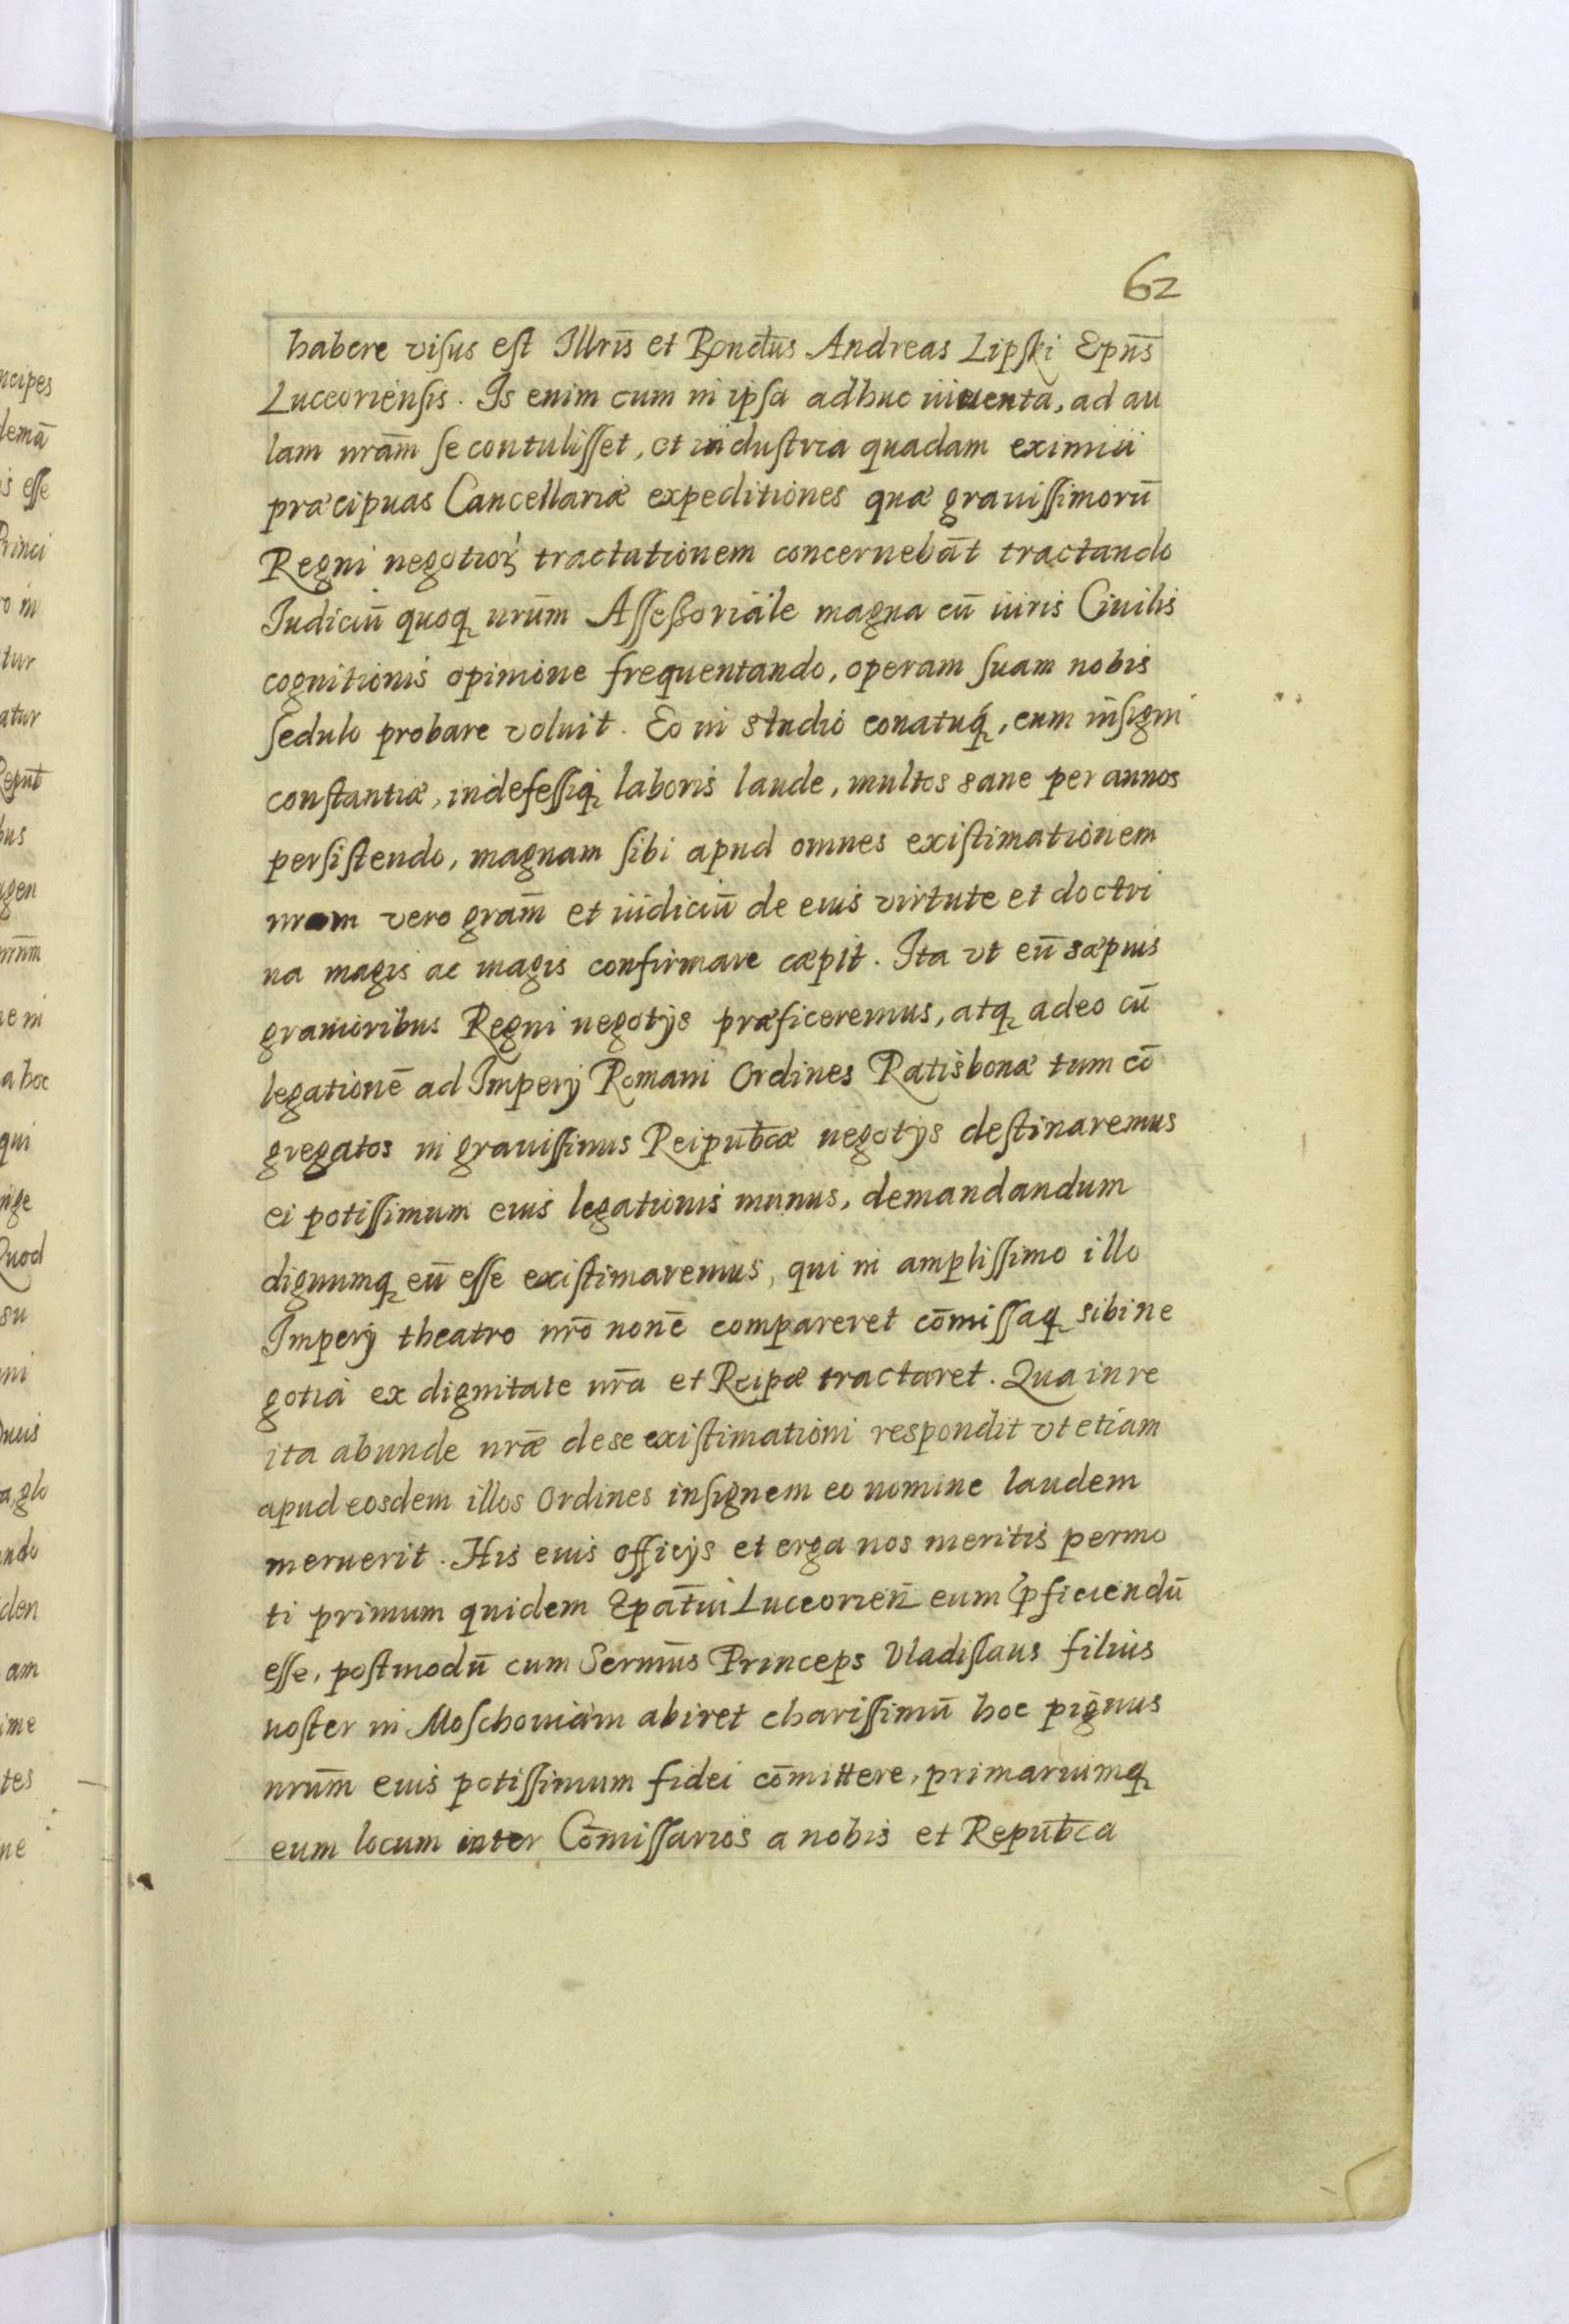 62
habere viſus eſt Illr̄is et Rṇdus Andreas Lipſki Epn̄s
Luceorienſis. Is enim cum in ipſa adhuc iuuenta, ad au
lam nram̄ ſe contuliſſet, et induſtria quadam eximia
præcipuas Cancellariæ expeditiones quæ grauiſſimorū
Regni negotioꝝ tractationem concernebāt tractando
Iudiciū quoqꝫ nrūm Aſſeßoriale magna cū iuris Ciuilis
cognitionis opinione frequentando, operam ſuam nobis
ſedulo probare voluit. Eo in studio conatuqꝫ, cum inſigni
conſtantiæ, indefeſſiqꝫ laboris laude, multos sane per annos
perſiſtendo, magnam ſibi apud omnes exiſtimationem
nram vero gram̄ et iudiciū de eius virtute et doctri
na magis ac magis confirmare cæpit. Ita vt eū sæpius
grauioribus Regni negotijs præficeremus, atqꝫ adeo cū
legationē ad Imperij Romani Ordines Ratisbonæ tum cō
gregatos in grauiſſimis Reipub̄cæ negotijs deſtinaremus
ei potiſſimum eius legationis munus, demandandum
dignumqꝫ eū eſſe exiſtimaremus, qui in ampliſſimo illo
Imperij theatro nrō nonē compareret cōmiſſaqꝫ sibi ne
gotia ex dignitate nrā et Reipæ tractaret. Qua in re
ita abunde nrǣ de se exiſtimationi respondit vt etiam
apud eosdem illos Ordines inſignem eo nomine laudem
meruerit. His eius officijs et erga nos meritis permo
ti primum quidem Epat̄ui Luceorien̄ eum p̄ficiendū
eſſe, poſtmodū cum Sermūs Princeps Vladiſlaus filius
noſter in Moſchouiam abiret chariſſimū hoc pignus
nrūm eius potiſſimum fidei cōmittere, primariumqꝫ
eum locum inter Cōmiſſarios a nobis et Repub̄ca